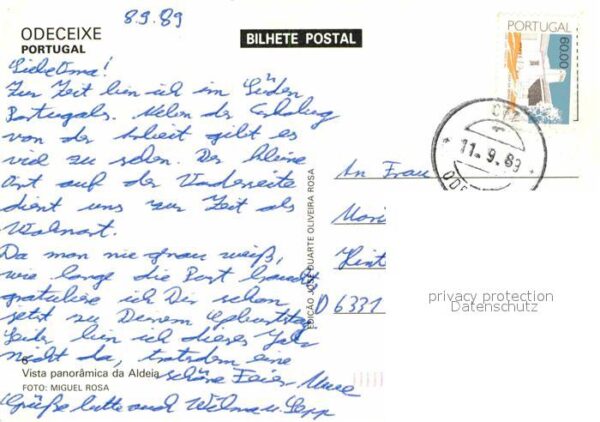 8.9.89
ODECEIXE
PORTUGAL
BILHETE POSTAL
PORTUGAL
60.00
Liebe Oma!
Zur Zeit bin ich im Süden
Portugals. Neben der Erholung
von der Arbeit gibt es
viel zu sehen. Der kleine
Ort auf der Vorderseite
dient uns zur Zeit als
Wohnort.
Da man nie genau weiß,
wie lange die Post braucht
gratuliere ich Dir schon
jetzt zu Deinem Geburtstag
Leider bin ich dieses Jahr
nicht da, trotzdem eine
schöne Feier
Grüße bitte auch Wilma u. Sepp
11. 9. 89
An Frau
D 6331
EDIÇÃO JOSÉ DUARTE OLIVEIRA ROSA
6
Vista panorâmica da Aldeia
FOTO: MIGUEL ROSA
privacy protection
Datenschutz